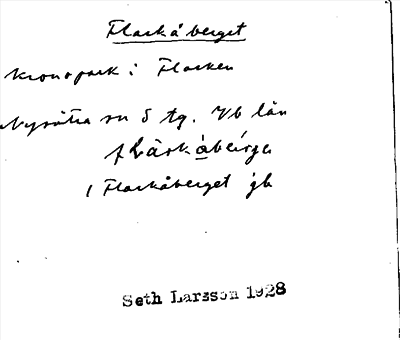 Flarkåberget
Kronopark i Flarken
Nysätra sn S tg. Vb län
flärkåbeirge
1 Flarkåberget jb
Seth Larsson 1928